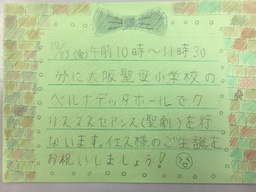 12/23(金)午前10時〜11:30
分に大阪聖母小学校の
ベルナデッタホールでク
リスマスセアンス(聖劇)を行
ないます。イエス様のご生誕を
お祝いしましょう!